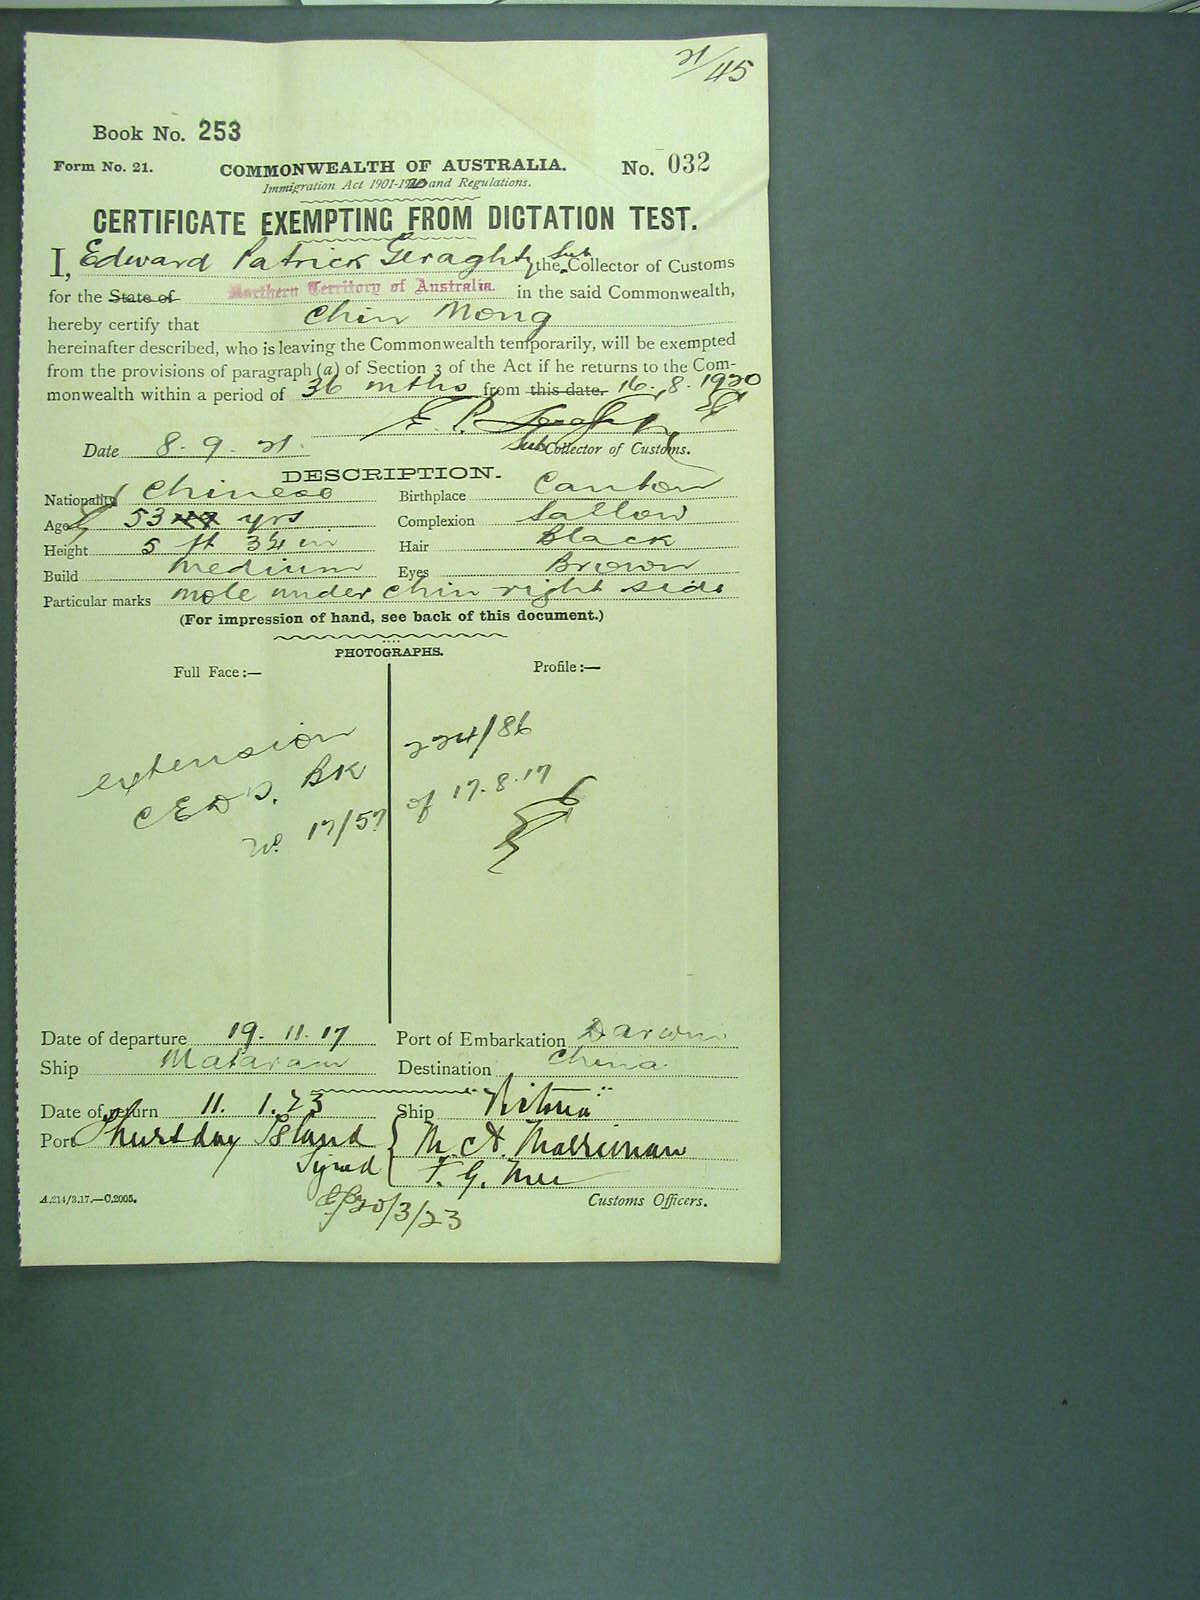 21/45
Book No. 253
Form No. 21. COMMONWEALTH OF AUSTRALIA. No. 032
Immigration Act 1901-1920 and Regulations.
CERTIFICATE EXEMPTING FROM DICTATION TEST.
I, Edward Patrick Geraghty the Sub Collector of Customs
for the State of Northern Territory of Australia. in the said Commonwealth,
hereby certify that Chin Mong
hereinafter described, who is leaving the Commonwealth temporarily, will be exempted
from the provisions of paragraph (a) of Section 3 of the Act if he returns to the Com-
monwealth within a period of 36 mths from this date. 16.8.1920
E. P. Geraghty
Date 8.9.21. Sub Collector of Customs.
DESCRIPTION.
Nationality Chinese Birthplace Canton
Age 53 49 yrs Complexion Sallow
Height 5 ft 3¼ in Hair Black
Build medium Eyes Brown
Particular marks mole under chin right side
(For impression of hand, see back of this document.)
PHOTOGRAPHS.
Full Face:— Profile:—
extension 224/86
CEDT. BK of 17.8.17
No. 17/57
Date of departure 19.11.17 Port of Embarkation Darwin
Ship Mataram Destination China
Date of return 11.1.23 Ship "Victoria"
Port Thursday Island M. A. Merriman
Signed F. G.
A.214/3.17.—C.2005. 20/3/23 Customs Officers.